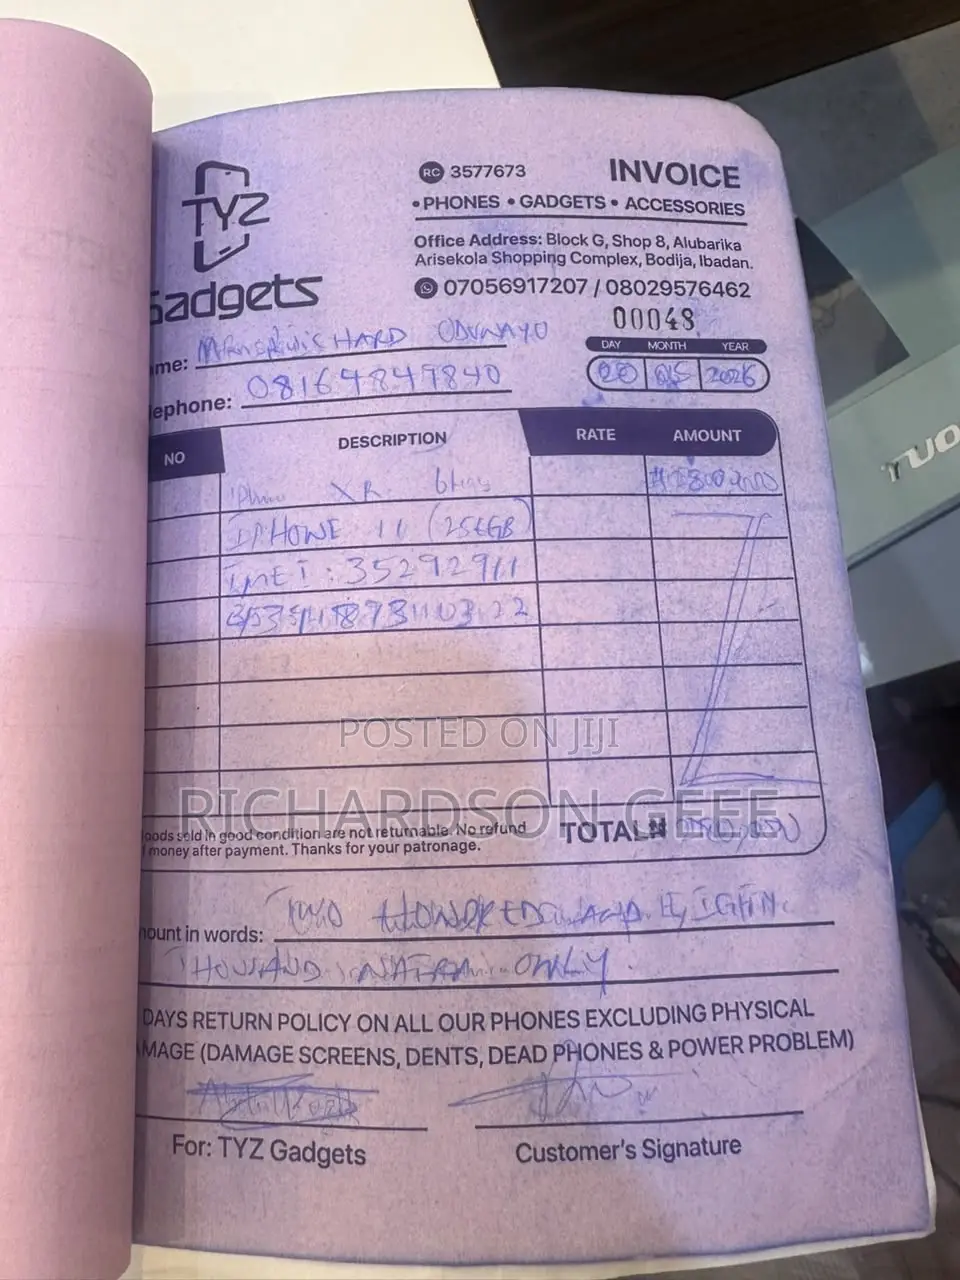 TYZ
Gadgets
RC 3577673
INVOICE
• PHONES • GADGETS • ACCESSORIES
Office Address: Block G, Shop 8, Alubarika
Arisekola Shopping Complex, Bodija, Ibadan.
07056917207 / 08029576462
00048
DAY MONTH YEAR
20 2026
me: ODUNAYO
lephone: 08164849840
NO DESCRIPTION RATE AMOUNT
XR
IPHONE 11 (256GB)
IMEI: 35292911
POSTED ON JIJI
RICHARDSON GEEE
oods sold in good condition are not returnable. No refund
money after payment. Thanks for your patronage.
TOTAL ₦
ount in words:
THOUSAND NAIRA ONLY
DAYS RETURN POLICY ON ALL OUR PHONES EXCLUDING PHYSICAL
MAGE (DAMAGE SCREENS, DENTS, DEAD PHONES & POWER PROBLEM)
For: TYZ Gadgets
Customer's Signature